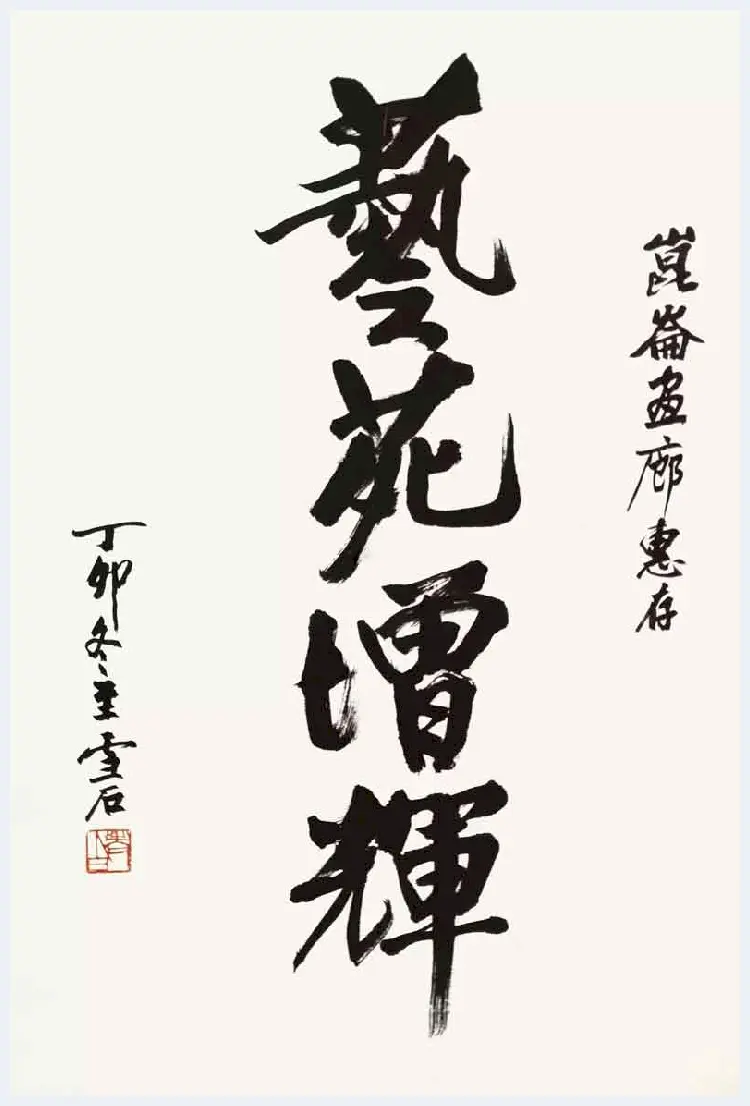 崑崙畫廊惠存
藝苑增輝
丁卯冬至雪石